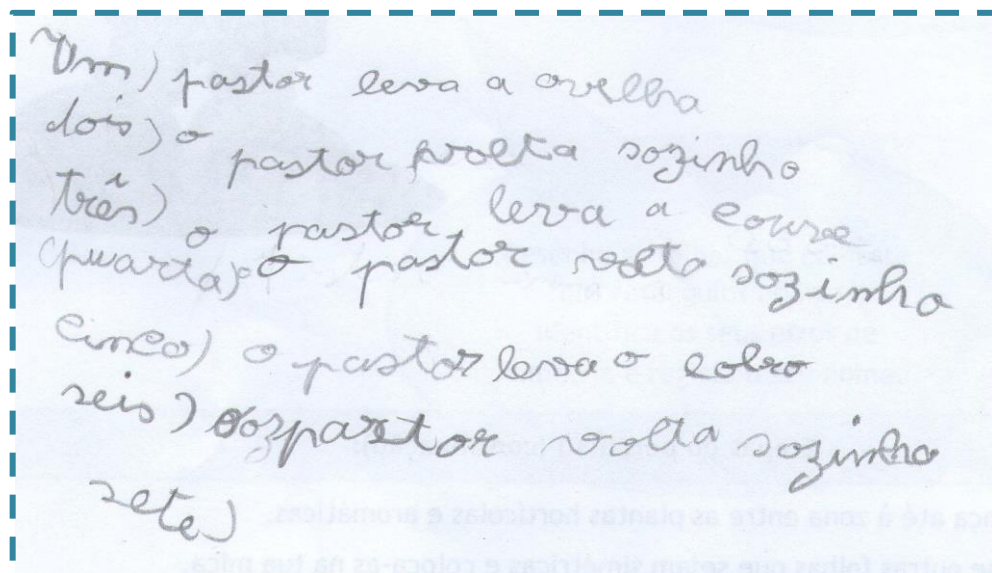 Um) pastor leva a ovelha
dois) o pastor volta sozinho
três) o pastor leva a couve
quarta) o pastor volta sozinho
cinco) o pastor leva o lobo
seis) pastor volta sozinho
sete)